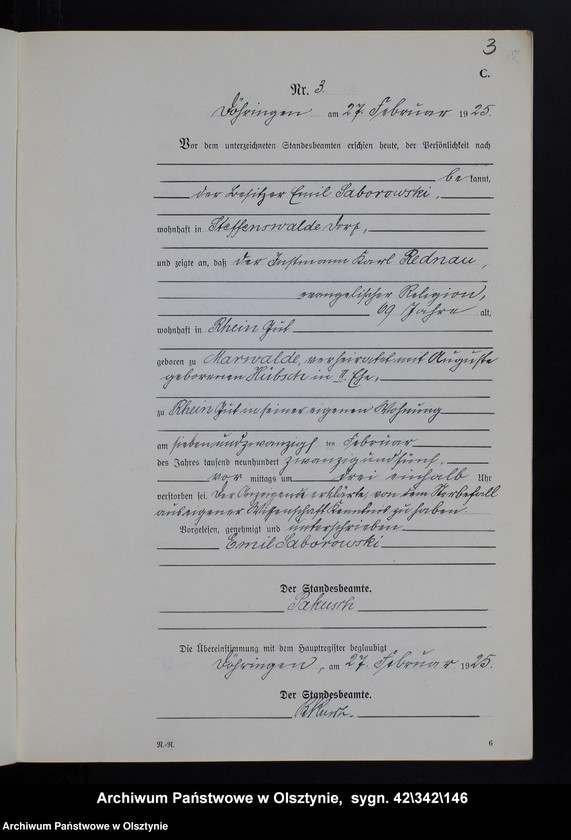 3
C.
Nr. 3.
Döhringen am 27. Februar 1925.
Vor dem unterzeichneten Standesbeamten erschien heute, der Persönlichkeit nach
be kannt,
der Besitzer Emil Saborowski,
wohnhaft in Steffenswalde Dorf,
und zeigte an, daß der Instmann Karl Rednau,
evangelischer Religion,
69 Jahre alt,
wohnhaft in Rhein Gut
geboren zu Marwalde, verheiratet mit Auguste
geborenen Hübsch in II. Ehe,
zu Rhein Gut in seiner eigenen Wohnung
am siebenundzwanzigsten Februar
des Jahres tausend neunhundert zwanzigundfünf,
vor mittags um drei einhalb Uhr
verstorben sei. Der Anzeigende erklärte, von dem Sterbefall
aus eigener Wissenschaft Kenntnis zu haben.
Vorgelesen, genehmigt und unterschrieben
Emil Saborowski
Der Standesbeamte.
Die Übereinstimmung mit dem Hauptregister beglaubigt
Döhringen, am 27. Februar 1925.
Der Standesbeamte.
N.-N.
6
Archiwum Państwowe w Olsztynie, sygn. 42\342\146
Archiwum Państwowe w Olsztynie